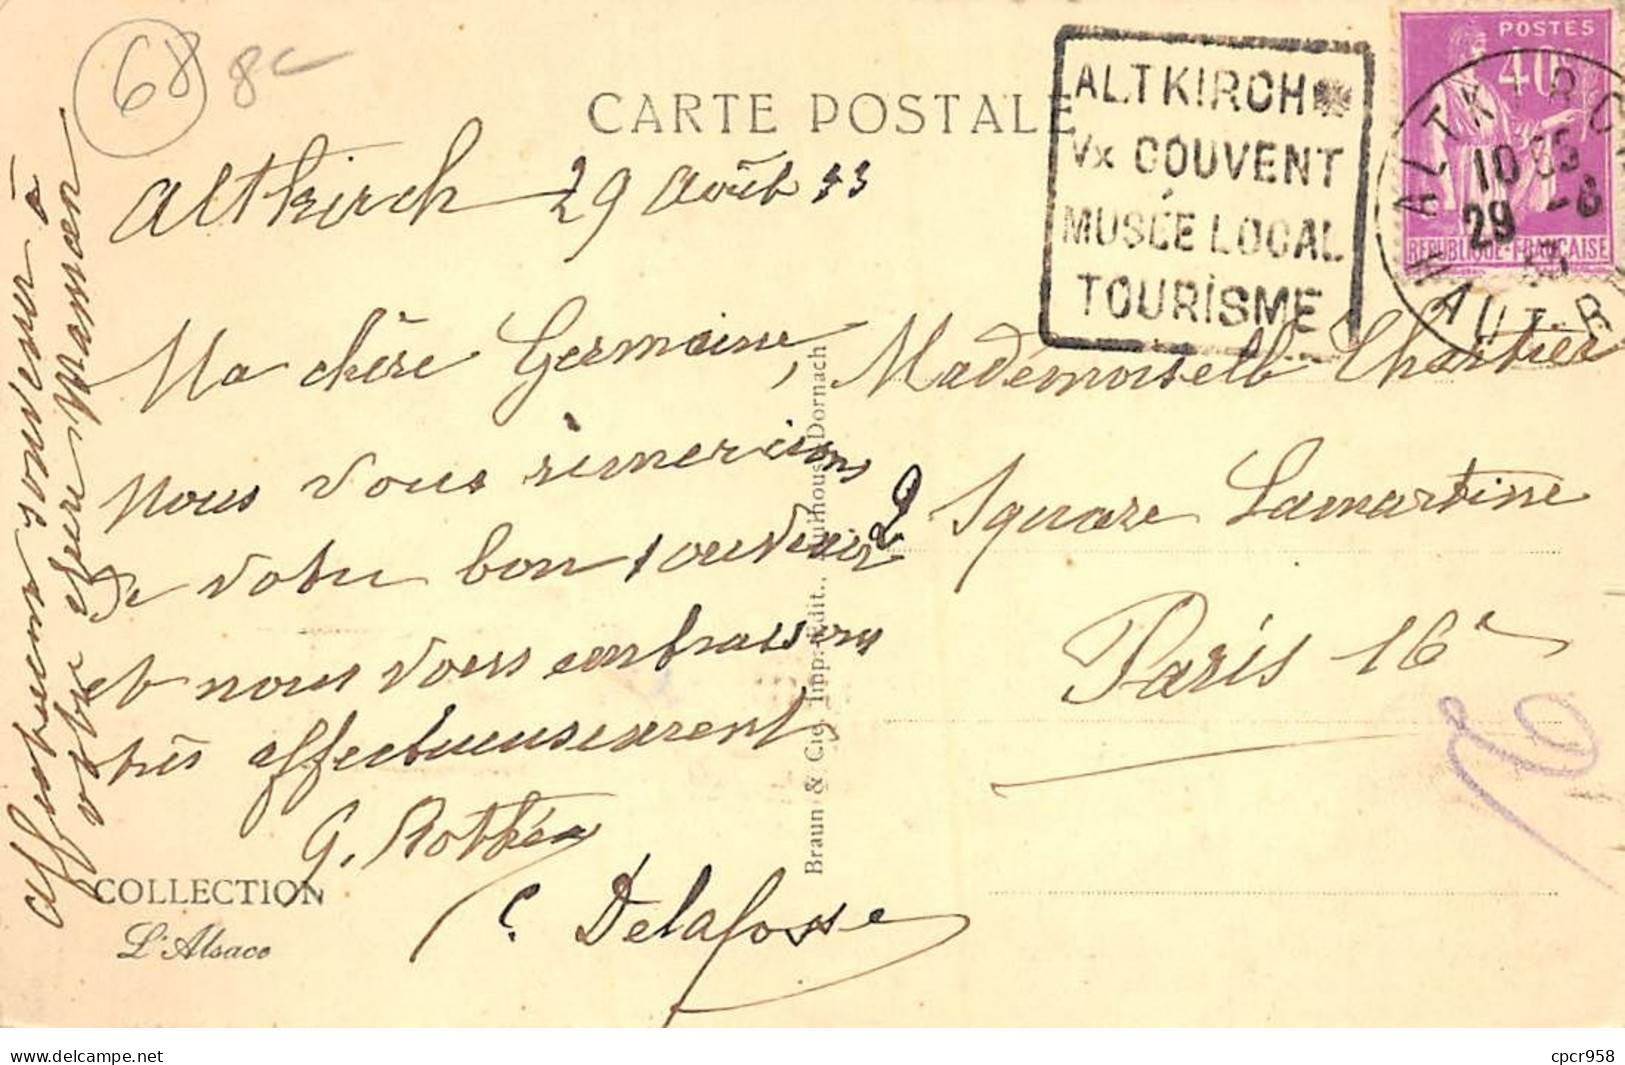 68 8c
CARTE POSTALE
ALTKIRCH
Vx COUVENT
MUSÉE LOCAL
TOURISME
POSTES
40c
REPUBLIQUE-FRANÇAISE
ALTKIRCH
10 35
29 -8
HAUT R
Altkirch 29 Août 33
Ma chère Germaine,
Nous vous remercions
de votre bon souvenir
et nous vous embrassons
très affectueusement,
G. Rothéa
C. Delafosse
Affectueux souvenir à
votre chère Maman
Mademoiselle Chartier
2 Square Lamartine
Paris 16e
Braun & Cie, Imp.-Edit., Mulhouse-Dornach
COLLECTION
L'Alsace
delcampe.net
cpcr958